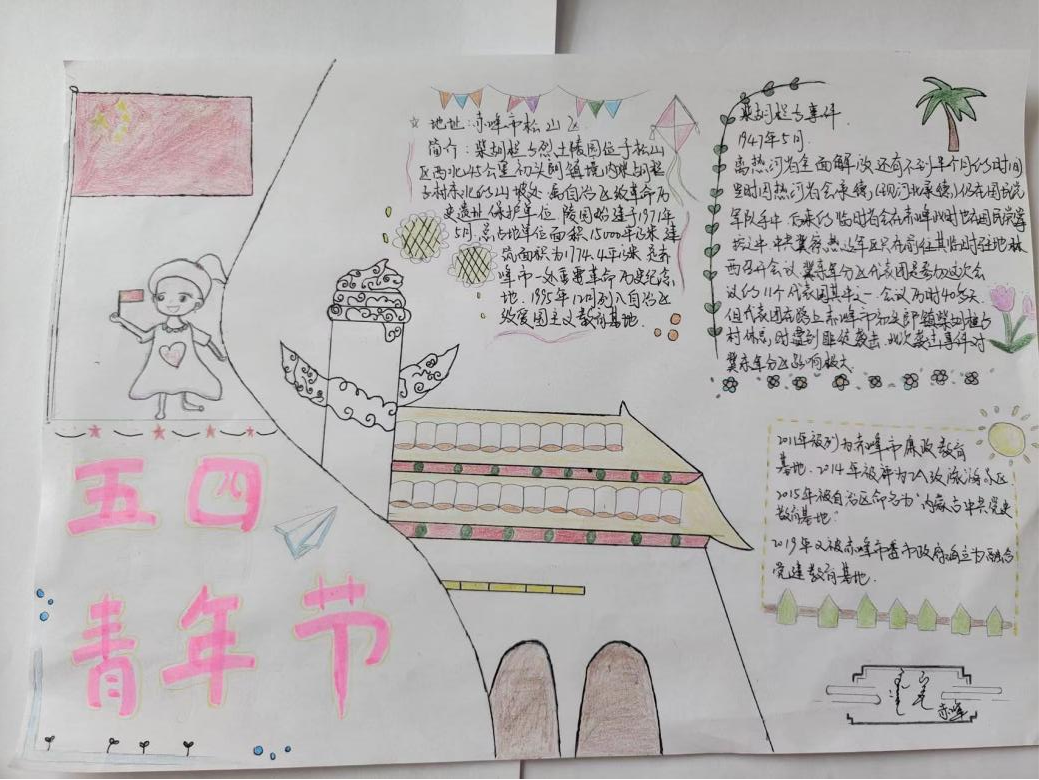 五四
青年节
☆ 地址:赤峰市松山区
简介:柴胡栏子烈士陵园位于松山
区西北45公里初头朗镇境内柴胡栏
子村东北的山坡处 属自治区级革命历
史遗址保护单位 陵园始建于1971年
5月.总占地单位面积15000平方米建
筑面积为1774.4平方米是赤
峰市一处重要革命历史纪念
地.1995年12月列入自治区
级爱国主义教育基地.
柴胡栏子事件.
1947年5月.
离热河省全面解放还有不到半个月的时间
当时因热河省会承德(现河北承德)仍在国民党
军队手中 后来的临时省会在赤峰此时也在国民党掌
控之中 中共冀察热辽军区只有前往其临时驻地林
西召开会议 冀东军分区代表团是参加这次会
议的11个代表团其中之一.会议历时40多天.
但代表团在路上赤峰市初头朗镇柴胡栏子
村休息时遭到匪徒袭击.此次袭击事件对
冀东军分区影响极大
2011年被列为赤峰市廉政教育
基地.2014年被评为2A级旅游景区.
2015年被自治区命名为"内蒙古中共党史
教育基地"
2019年又被赤峰市委市政府确立为融合
党建教育基地.
赤峰